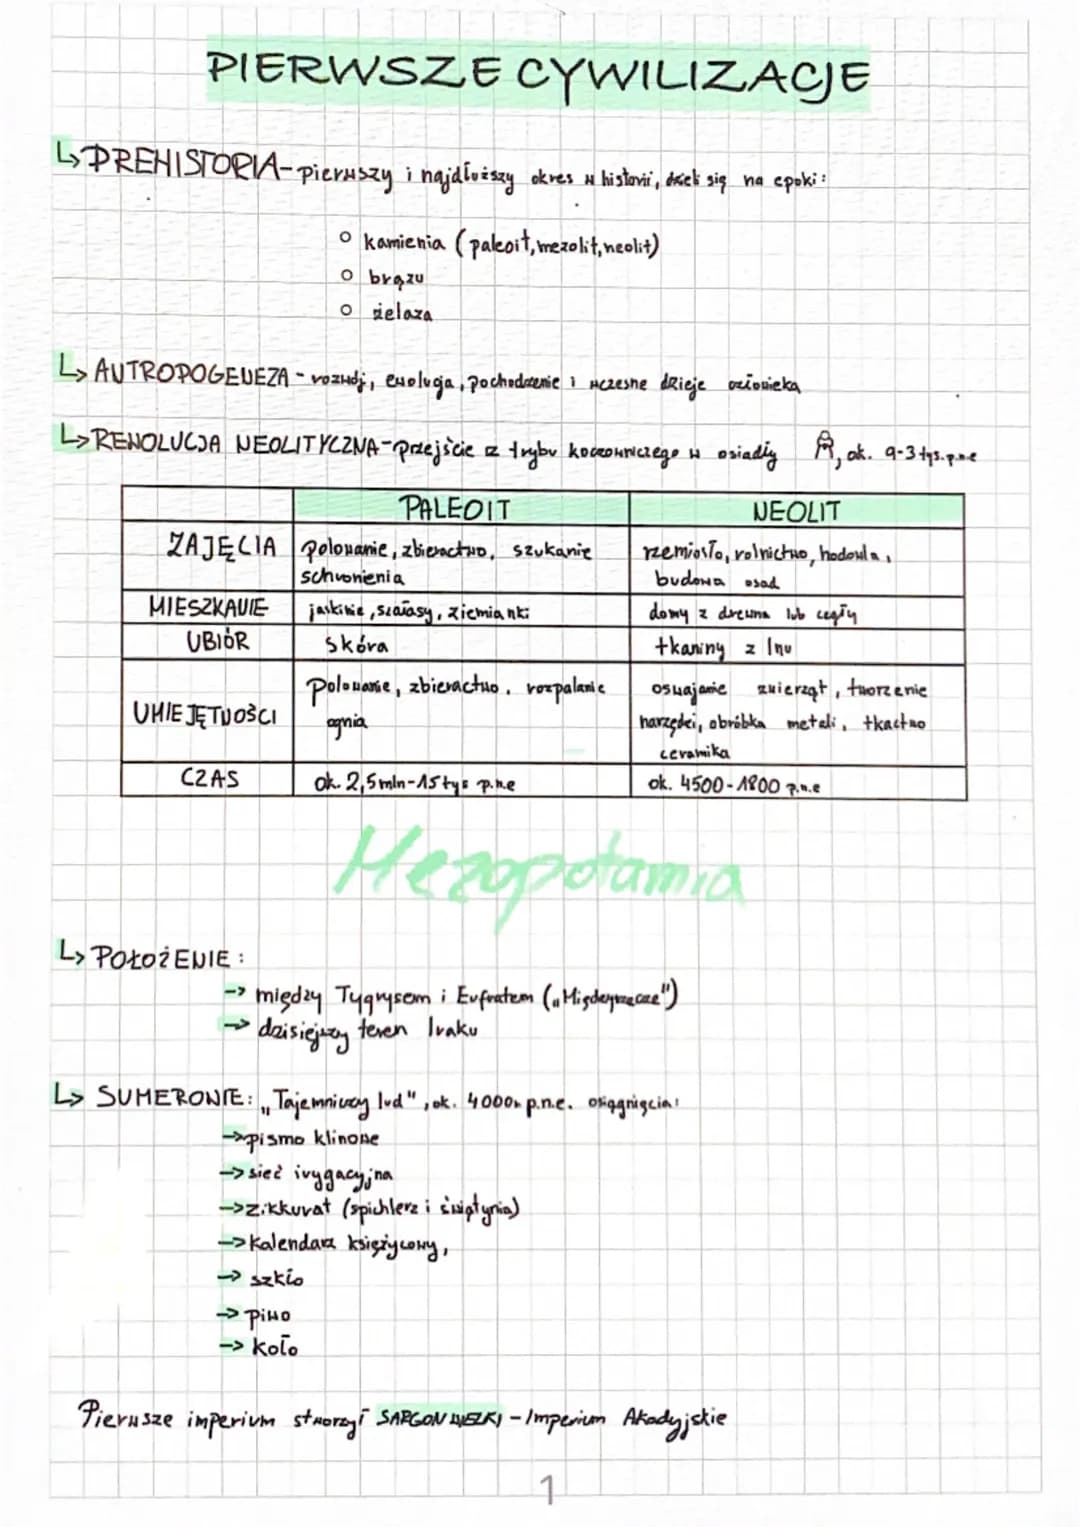 PIERWSZE CYWILIZACJE
↳PREHISTORIA-pierwszy i najdłuższy okres w historii, dzieli się na epoki:
○ kamienia (paleoit, mezolit, neolit)
○ brązu
○ żelaza
↳ ANTROPOGENEZA - rozwój, ewolucja, pochodzenie i wczesne dzieje człowieka
↳REWOLUCJA NEOLITYCZNA-przejście z trybu koczowniczego w osiadły , ok. 9-3 tys. p.n.e
PALEOIT NEOLIT
ZAJĘCIA polowanie, zbieractwo, szukanie rzemiosło, rolnictwo, hodowla,
schronienia budowa osad
MIESZKANIE jaskinie, szałasy, ziemianki domy z drewna lub cegły
UBIÓR skóra tkaniny z lnu
UMIEJĘTNOŚCI Polowanie, zbieractwo, rozpalanie oswajanie zwierząt, tworzenie
ognia narzędzi, obróbka metali, tkactwo
ceramika
CZAS ok. 2,5mln-15tys p.n.e ok. 4500-1800 p.n.e
Mezopotamia
↳ POŁOŻENIE:
→ między Tygrysem i Eufratem („Międzyrzecze")
→ dzisiejszy teren Iraku
↳ SUMEROWIE: „Tajemniczy lud", ok. 4000r p.n.e. osiągnięcia:
→pismo klinowe
→ sieć irygacyjna
→zikkurat (spichlerz i świątynia)
→ Kalendarz księżycowy,
→ szkło
→ piwo
→ koło
Pierwsze imperium stworzył SARGON WIELKI - Imperium Akadyjskie
1